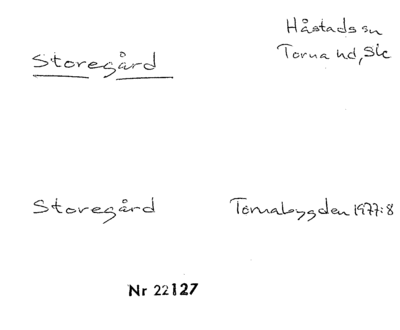 Håstads sn
Storegård Torna hd, Sk
Storegård Tornabygden 1977:8
Nr 22127